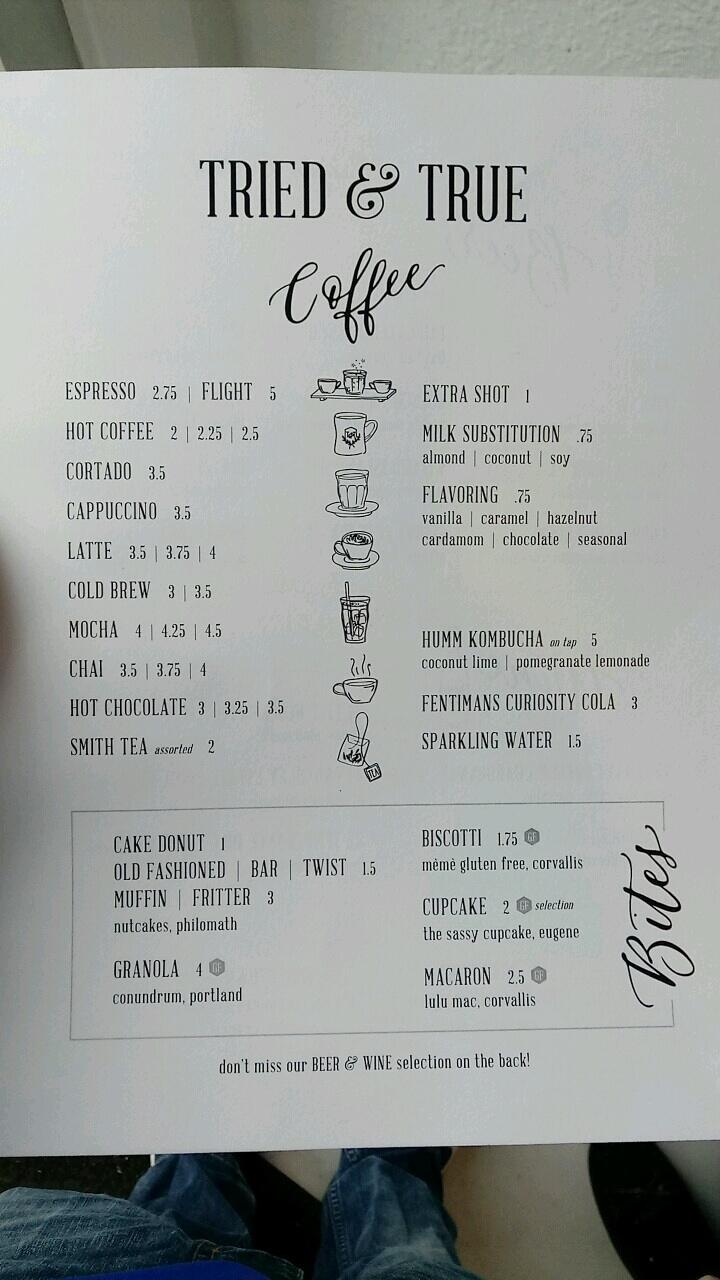 TRIED & TRUE
Coffee
ESPRESSO 2.75 | FLIGHT 5
HOT COFFEE 2 | 2.25 | 2.5
CORTADO 3.5
CAPPUCCINO 3.5
LATTE 3.5 | 3.75 | 4
COLD BREW 3 | 3.5
MOCHA 4 | 4.25 | 4.5
CHAI 3.5 | 3.75 | 4
HOT CHOCOLATE 3 | 3.25 | 3.5
SMITH TEA assorted 2
TEA
EXTRA SHOT 1
MILK SUBSTITUTION .75
almond | coconut | soy
FLAVORING .75
vanilla | caramel | hazelnut
cardamom | chocolate | seasonal
HUMM KOMBUCHA on tap 5
coconut lime | pomegranate lemonade
FENTIMANS CURIOSITY COLA 3
SPARKLING WATER 1.5
Bites
CAKE DONUT 1
OLD FASHIONED | BAR | TWIST 1.5
MUFFIN | FRITTER 3
nutcakes, philomath
GRANOLA 4 GF
conundrum, portland
BISCOTTI 1.75 GF
mèmè gluten free, corvallis
CUPCAKE 2 GF selection
the sassy cupcake, eugene
MACARON 2.5 GF
lulu mac, corvallis
don't miss our BEER & WINE selection on the back!